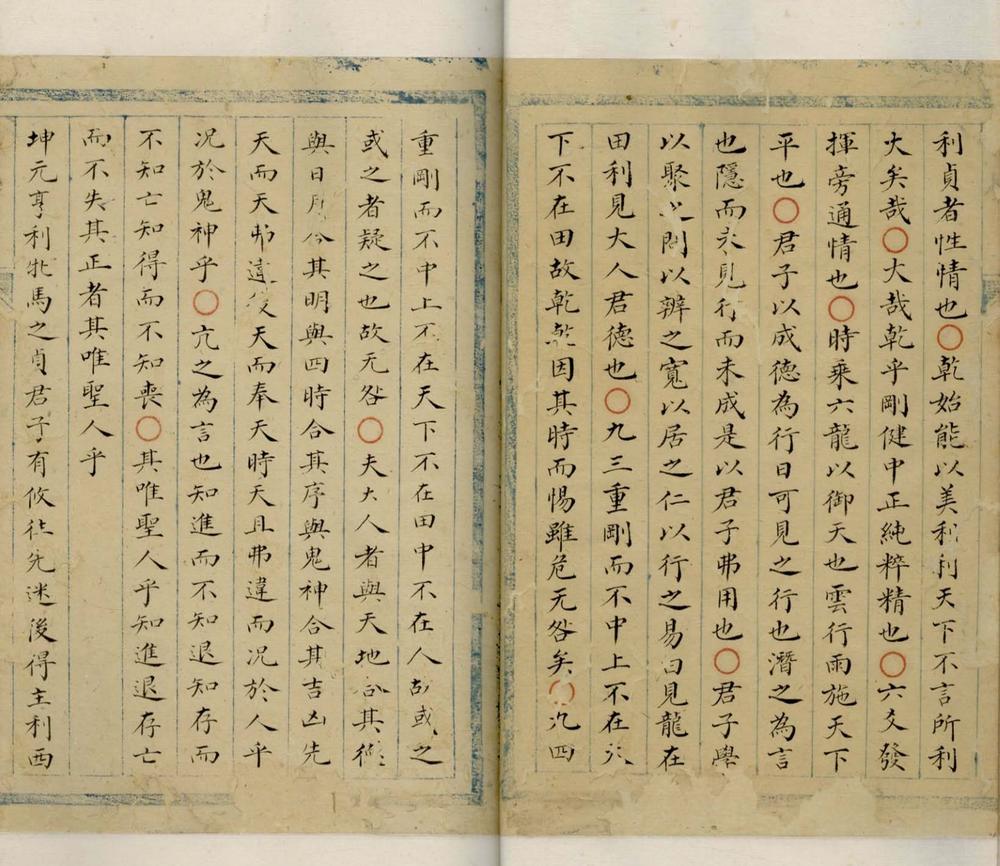 利貞者性情也〇乾始能以美利利天下不言所利
大矣哉〇大哉乾乎剛健中正純粹精也〇六爻發
揮旁通情也〇時乘六龍以御天也雲行雨施天下
平也〇君子以成德為行日可見之行也潛之為言
也隱而未見行而未成是以君子弗用也〇君子學
以聚之問以辨之寬以居之仁以行之易曰見龍在
田利見大人君德也〇九三重剛而不中上不在天
下不在田故乾乾因其時而惕雖危无咎矣〇九四
重剛而不中上不在天下不在田中不在人故或之
或之者疑之也故无咎〇夫大人者與天地合其德
與日月合其明與四時合其序與鬼神合其吉凶先
天而天弗違後天而奉天時天且弗違而況於人乎
況於鬼神乎〇亢之為言也知進而不知退知存而
不知亡知得而不知喪〇其唯聖人乎知進退存亡
而不失其正者其唯聖人乎
坤元亨利牝馬之貞君子有攸往先迷後得主利西